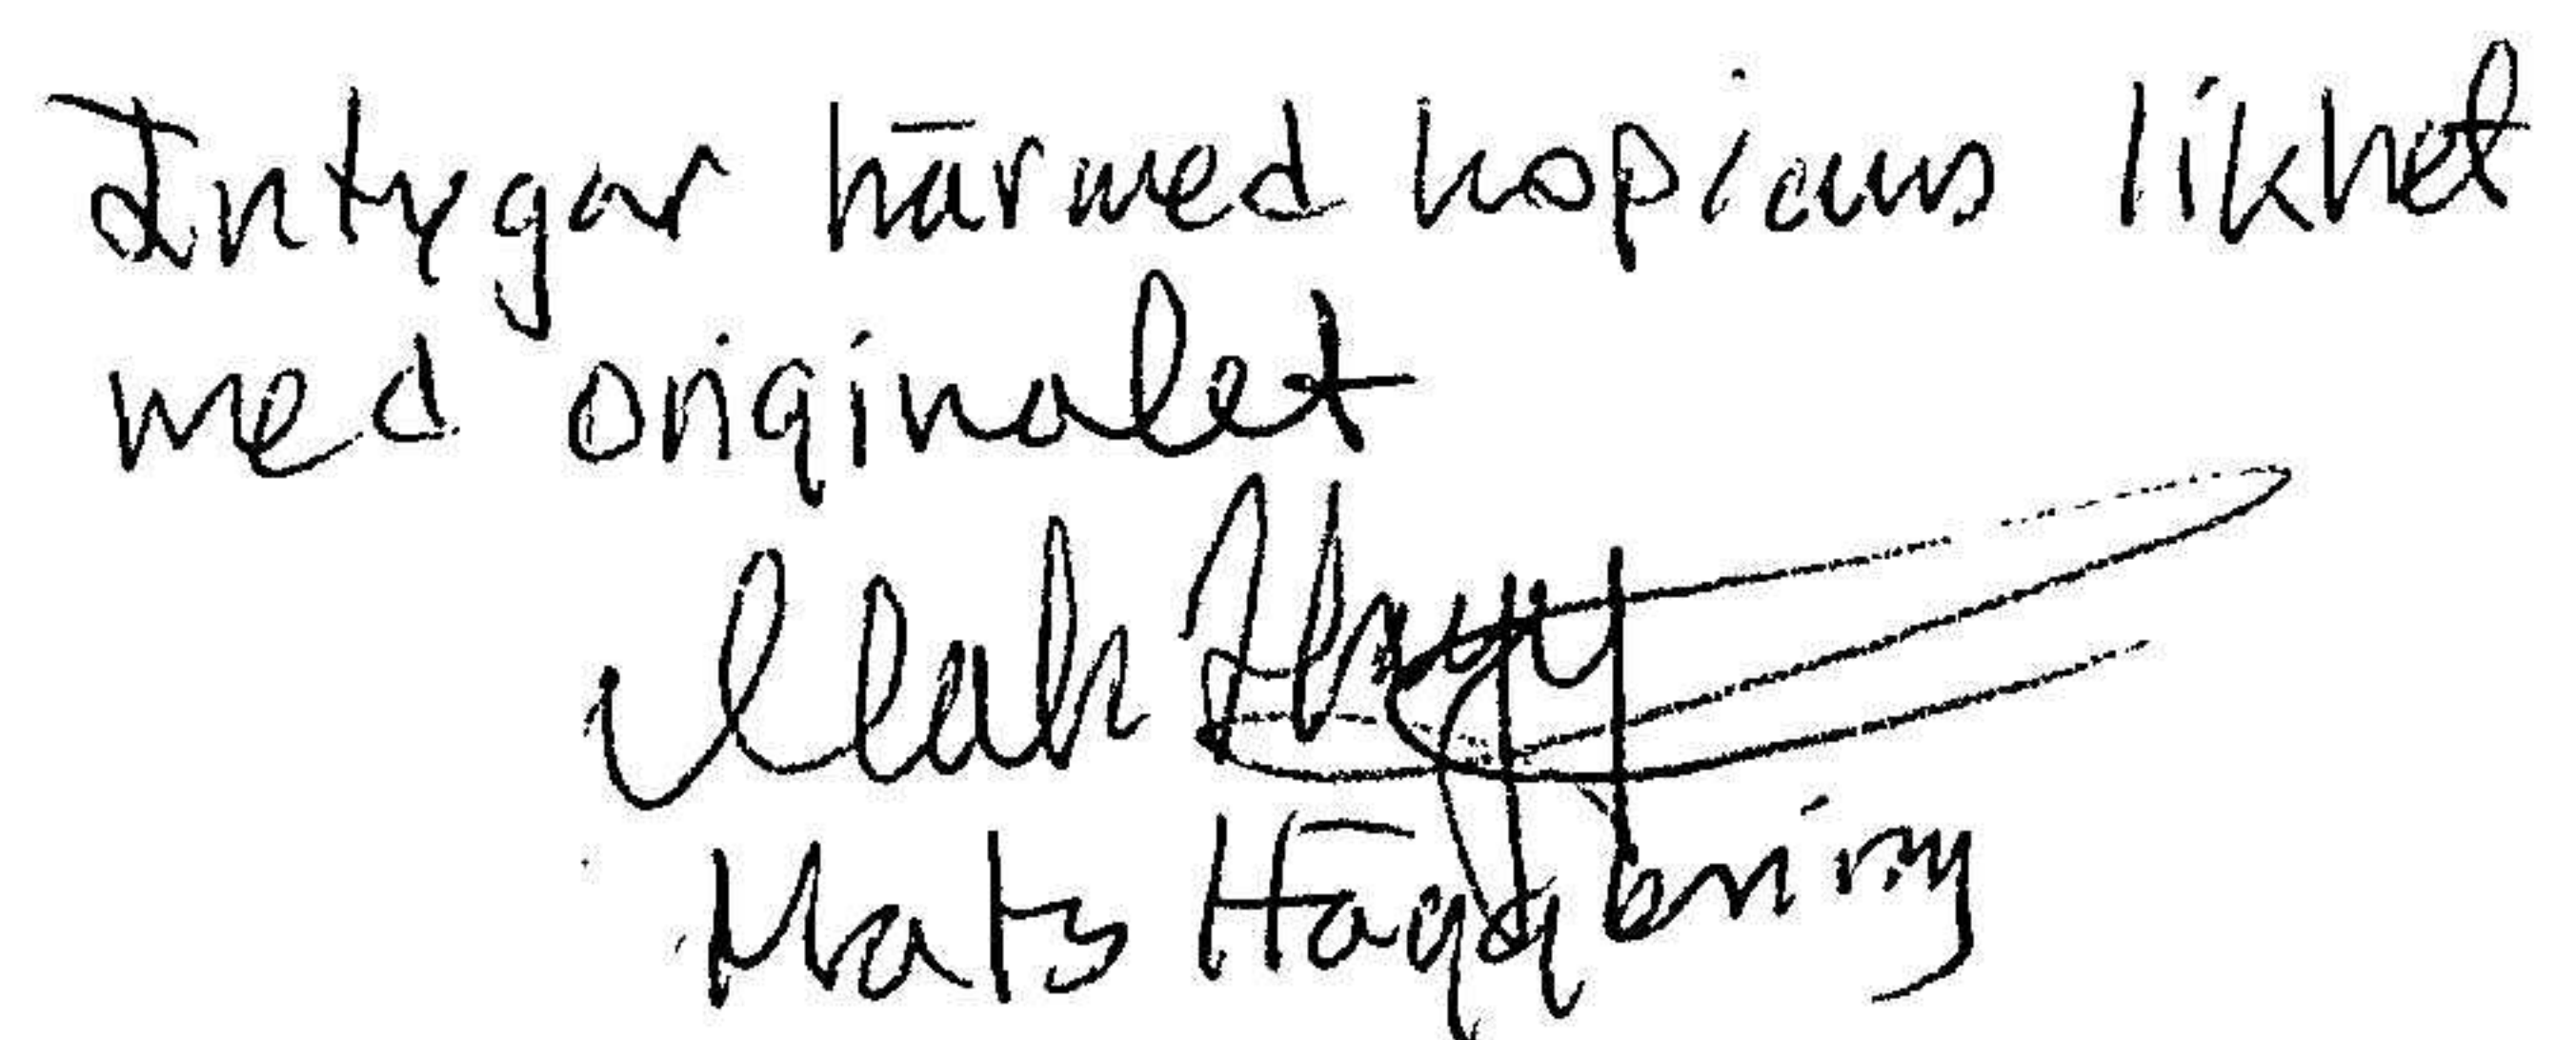 Intygar härmed kopians likhet
med originalet
Mats Häggbring